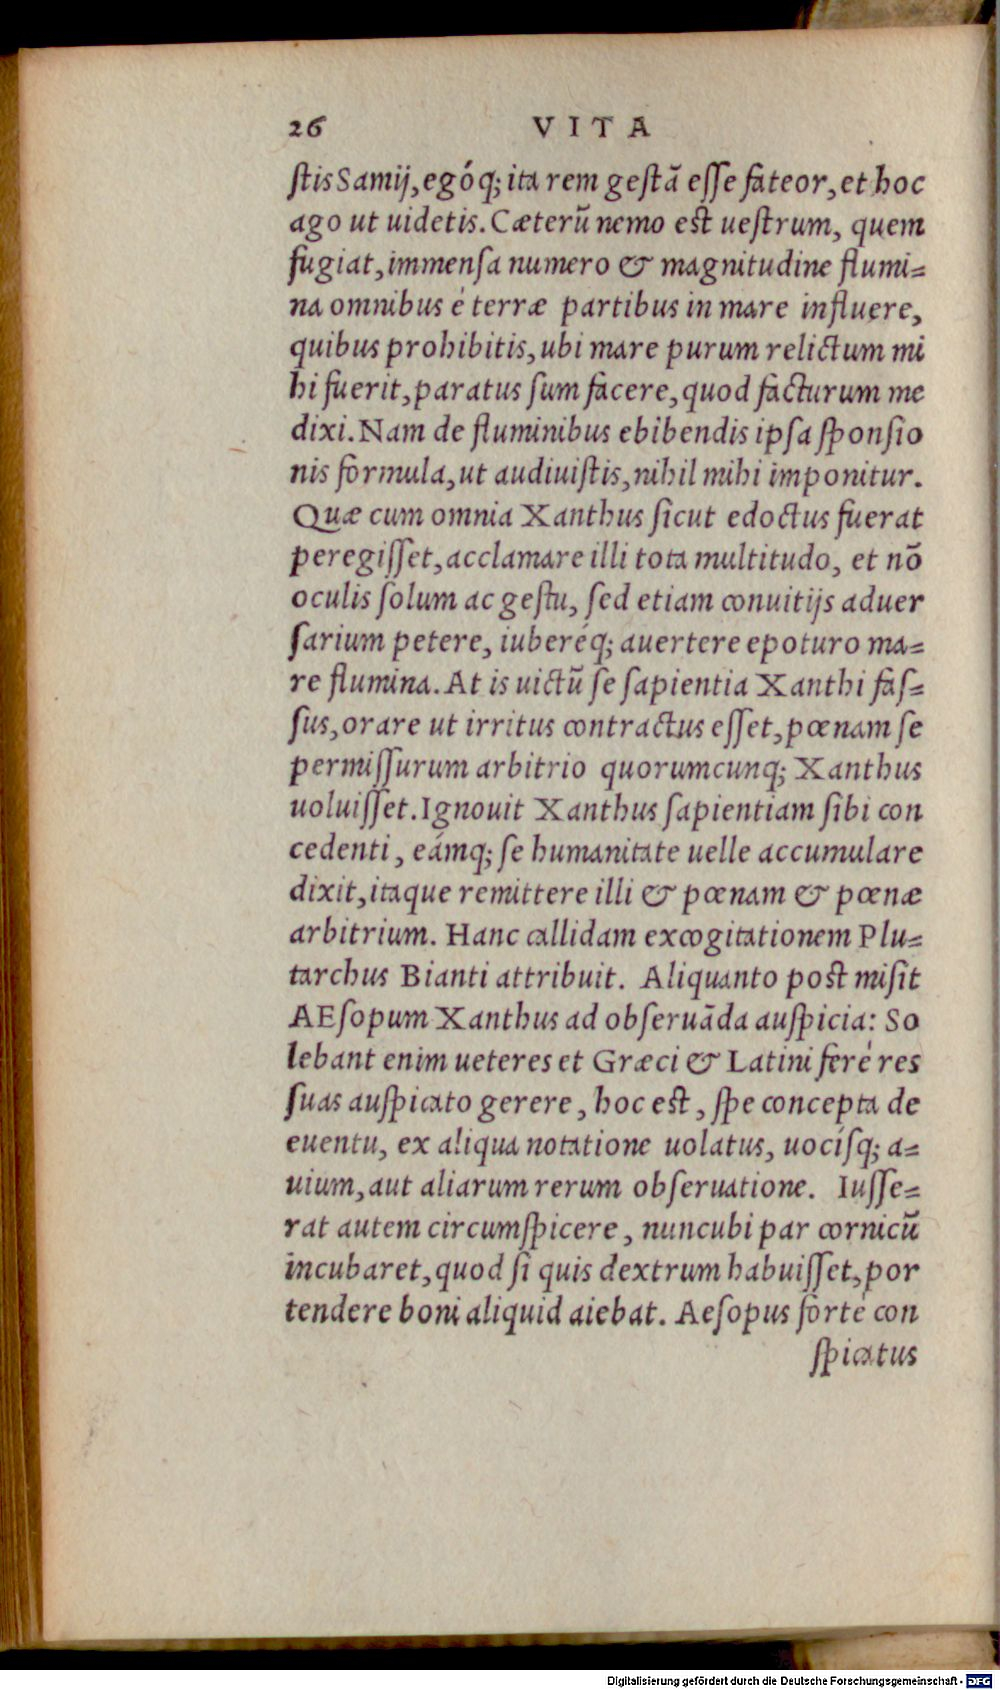 26 VITA
ſtis Samij, egóq; ita rem geſtã eſſe fateor, et hoc
ago ut uidetis. Cæterũ nemo est ueſtrum, quem
fugiat, immenſa numero & magnitudine flumi=
na omnibus è terræ partibus in mare influere,
quibus prohibitis, ubi mare purum relictum mi
hi fuerit, paratus ſum facere, quod facturum me
dixi. Nam de fluminibus ebibendis ipſa ſponſio
nis formula, ut audiuiſtis, nihil mihi imponitur.
Quæ cum omnia Xanthus ſicut edoctus fuerat
peregiſſet, acclamare illi tota multitudo, et nõ
oculis ſolum ac geſtu, ſed etiam conuitijs aduer
ſarium petere, iuberéq; auertere epoturo ma=
re flumina. At is uictũ ſe ſapientia Xanthi faſ=
ſus, orare ut irritus contractus eſſet, pœnam ſe
permiſſurum arbitrio quorumcunq; Xanthus
uoluiſſet. Ignouit Xanthus ſapientiam ſibi con
cedenti, eámq; ſe humanitate uelle accumulare
dixit, itaque remittere illi & pœnam & pœnæ
arbitrium. Hanc callidam excogitationem Plu=
tarchus Bianti attribuit. Aliquanto post miſit
AEſopum Xanthus ad obſeruãda auſpicia: So
lebant enim ueteres et Græci & Latini ferè res
ſuas auſpicato gerere, hoc est, ſpe concepta de
euentu, ex aliqua notatione uolatus, uocíſq; a=
uium, aut aliarum rerum obſeruatione. Iuſſe=
rat autem circumſpicere, nuncubi par cornicũ
incubaret, quod ſi quis dextrum habuiſſet, por
tendere boni aliquid aiebat. Aeſopus fortè con
ſpicatus
Digitalisierung gefördert durch die Deutsche Forschungsgemeinschaft - DFG